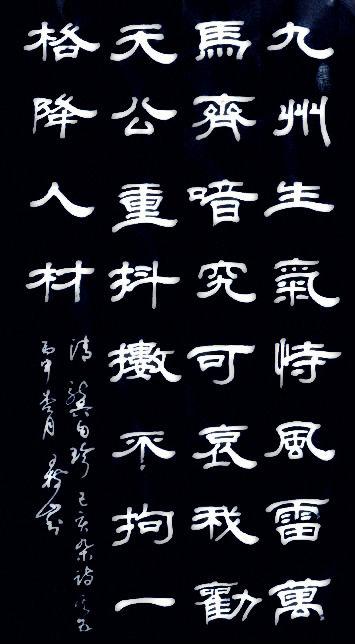 九州生氣恃風雷萬
馬齊喑究可哀我勸
天公重抖擻不拘一
格降人材
清龔自珍己亥杂诗
丙申